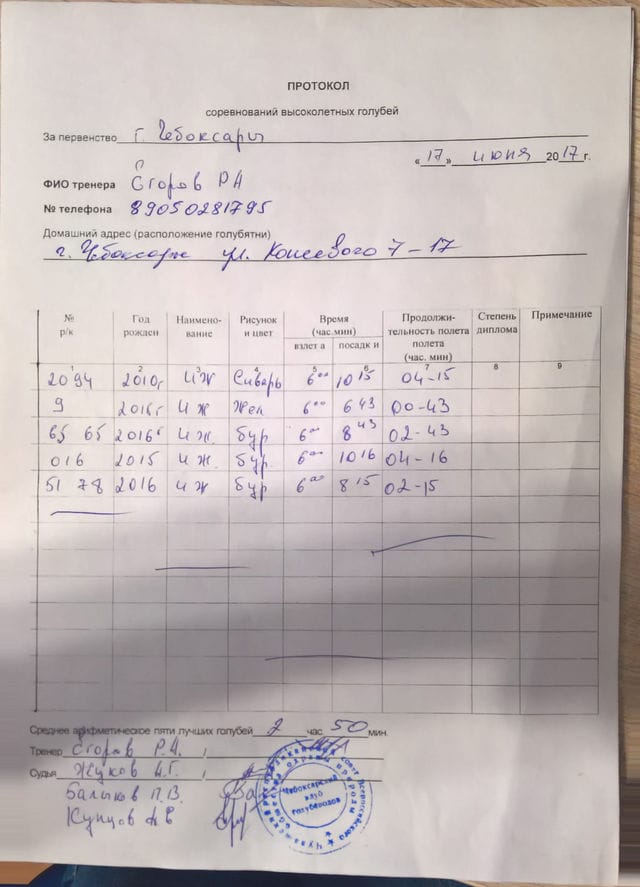 ПРОТОКОЛ
соревнований высоколетных голубей
За первенство г. Чебоксары
«17» июня 2017 г.
ФИО тренера Егоров РА
№ телефона 89050281795
Домашний адрес (расположение голубятни)
г. Чебоксары ул. 7-17
№ р/к Год рожден Наимено-вание Рисунок и цвет Время (час.мин) взлет а посадк и Продолжи-тельность полета полета (час. мин) Степень диплома Примечание
1 2 3 4 5 6 7 8 9
2094 2010г ИЖ Сиварь 6 00 10 15 04-15
9 2016г ИЖ Жел 6 00 6 43 00-43
65 65 2016г ИЖ. бур 6 00 8 43 02-43
016 2015 ИЖ. бур. 6 00 10 16 04-16
51 78 2016 ИЖ бур 6 00 8 15 02-15
Среднее арифметическое пяти лучших голубей 2 час. 50 мин.
Тренер Егоров Р.А. /
Судья Жуков А.Г. /
П.В.
Купцов АВ
Чебоксарский
клуб
голубеводов